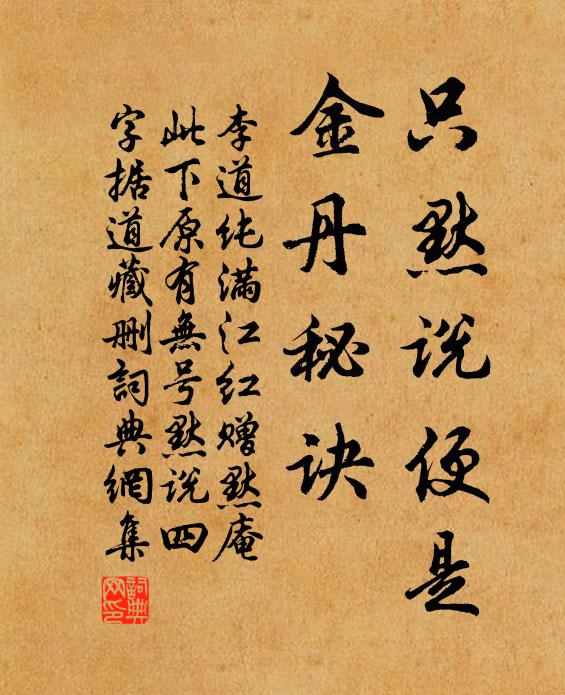 只默说便是
金丹秘诀
李道纯满江红赠默庵
此下原有無号默说四
字据道藏删詞典網集
詞典網印